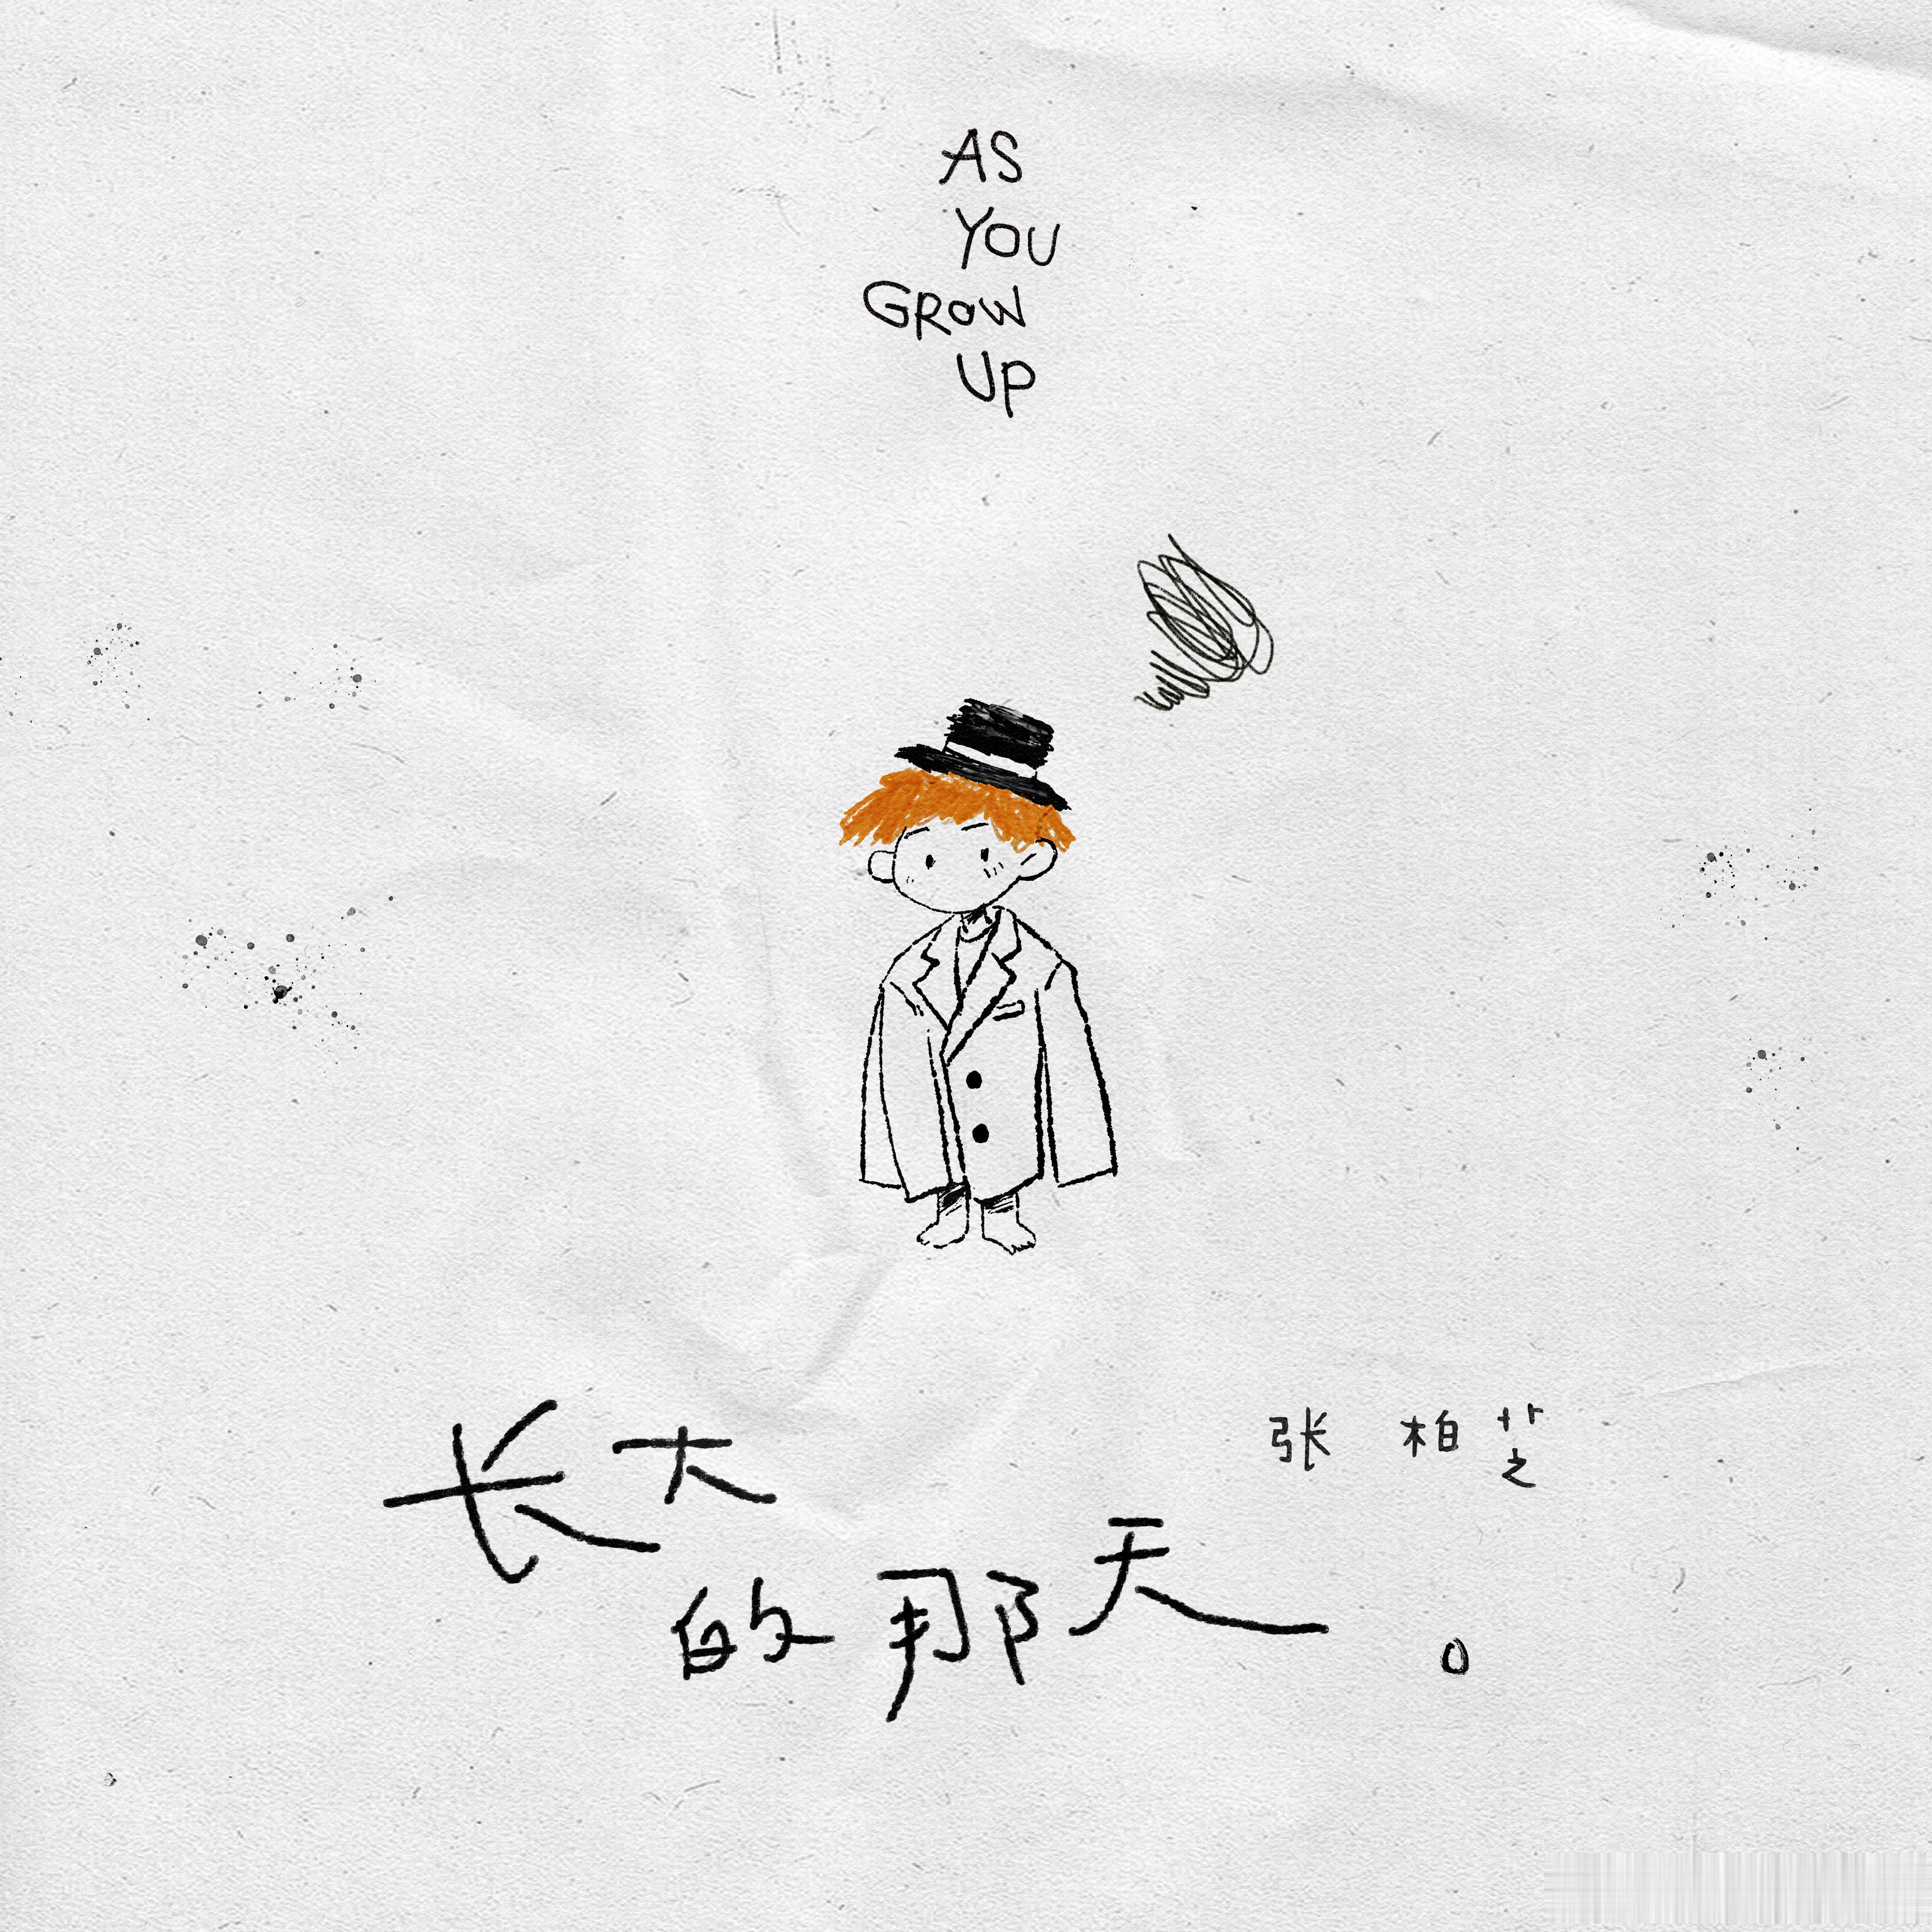 AS
YOU
GROW
UP
张柏芝
长大
的那天。